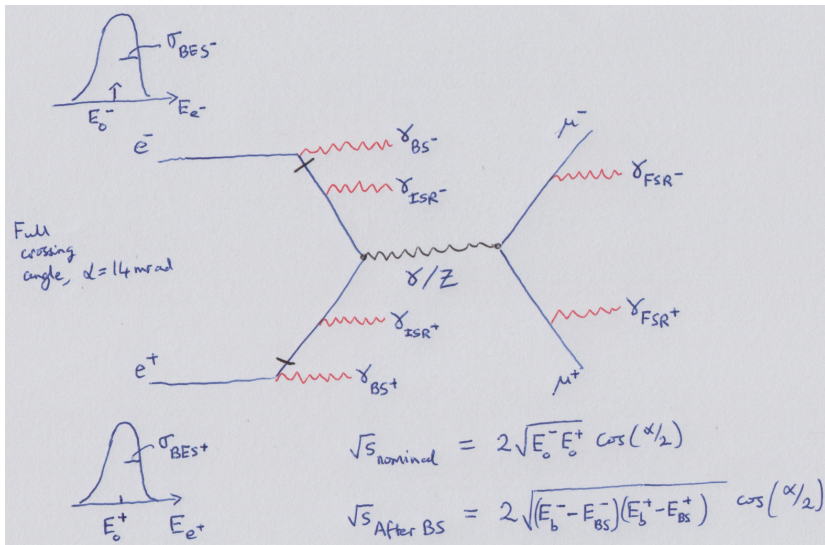 σ_BES⁻
E₀⁻
E_e⁻
e⁻
γ_BS⁻
γ_ISR⁻
μ⁻
γ_FSR⁻
Full
crossing
angle, α = 14 mrad
γ/Z
γ_ISR⁺
γ_FSR⁺
e⁺
γ_BS⁺
μ⁺
σ_BES⁺
E₀⁺
E_e⁺
√s_nominal = 2√(E₀⁻ E₀⁺) cos(α/2)
√s_After BS = 2√((E_b⁻ - E_BS⁻)(E_b⁺ - E_BS⁺)) cos(α/2)